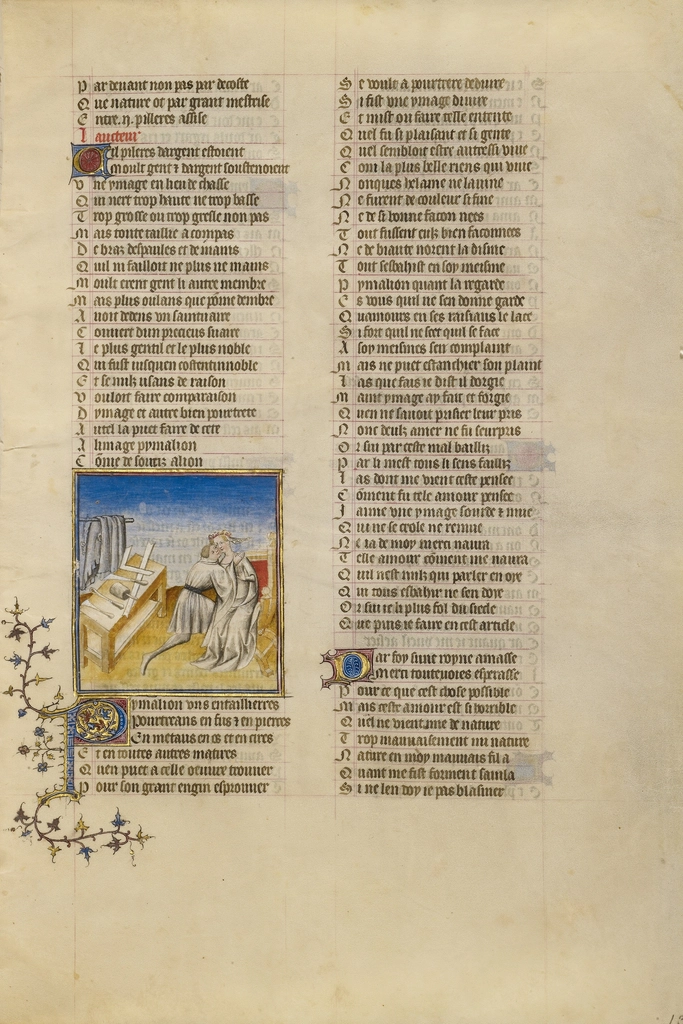 Par deuant non pas par decoste
Que nature ot par grant mestrise
Entre .ij. pilleres assise
Laucteur
Cil pileres dargent estoient
Moult gent ⁊ dargent soustenoient
Vne ymage en lieu de chasse
Qui nert trop haute ne trop basse
Trop grosse ou trop gresle non pas
Mais toute taillie a compas
De braz despaules et de mains
Quil ni failloit ne plus ne mains
Moult erent gent li autre membre
Mais plus oulans que pome dembre
Auoit dedens vn saintuaire
Couuert dun precieus suaire
Le plus gentil et le plus noble
Qui fust iusquen costentinnoble
Et se nulz usans de raison
Vouloit faire comparaison
Dymage et autre bien pourtrete
Autel la puet faire de cete
A limage pymalion
Come de souriz a lion
Pymalion vns entaillierres
Pourtreans en fus ⁊ en pierres
En metaus en os et en cires
Et en toutes autres matires
Quen puet a celle oeuure trouuer
Pour son grant engin esprouuer
Se voult a pourtrere deduire
Si fist vne ymage diuire
Et mist ou faire telle entente
Quel fu si plaisant et si gente
Quel sembloit estre autressi viue
Com la plus belle riens qui viue
Nonques helaine ne lauine
Ne furent de couleur si fine
Ne de si bonne facon nees
Tout fussent eulz bien faconnees
Ne de biaute norent la disme
Tout sesbahist en soy meisme
Pymalion quant la regarde
Es vous quil ne sen donne garde
Quamours en ses raisiaus le lace
Si fort quil ne scet quil se face
A soy meismes sen complaint
Mais ne puet estanchier son plaint
Las que fais ie dist il dorgie
Maint ymage ay fait et forgie
Quen ne sauoit prisier leur pris
Nonc deulz amer ne fu seurpris
Or sui par ceste mal bailliz
Par li mest tous li sens failliz
Las dont me vient ceste pensee
Coment fu tele amour pensee
Jaime vne ymage sourde ⁊ mue
Qui ne se crole ne remue
Ne ia de moy merci naura
Telle amour coment me naura
Quil nest nulz qui parler en oye
Qui tous esbahir ne sen doye
Or sui ie li plus fol du siecle
Que puis ie faire en cest article
Par foy sune royne amasse
Merci touteuoies esperasse
Pour ce que cest chose possible
Mais ceste amour est si horrible
Quel ne vient mie de nature
Trop mauuaisement mi nature
Nature en moy mauuais fil a
Quant me fist forment sauila
Si ne len doy ie pas blasmer